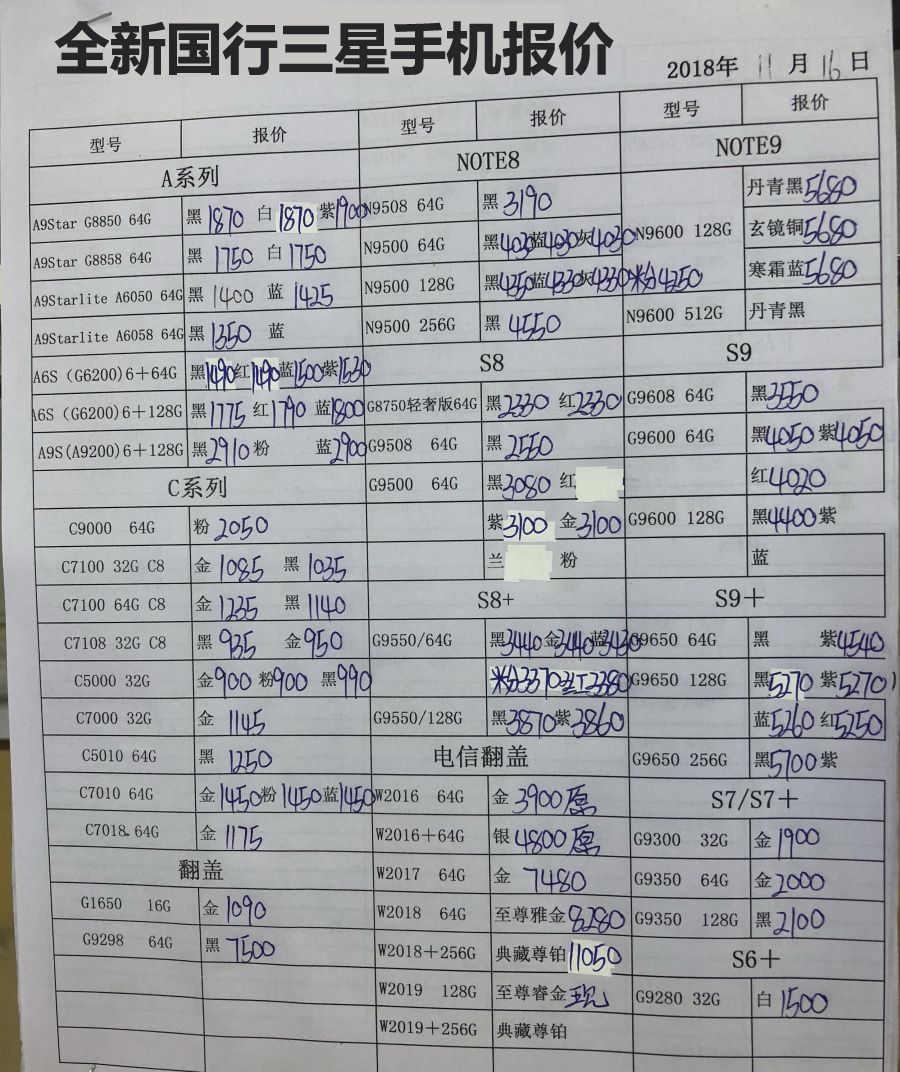 全新国行三星手机报价
2018年 11 月 16 日
型号 报价
A系列
A9Star G8850 64G 黑 1870 白 1870 紫 1900
A9Star G8858 64G 黑 1750 白 1750
A9Starlite A6050 64G 黑 1400 蓝 1425
A9Starlite A6058 64G 黑 1350 蓝
A6S (G6200)6+64G 黑 1490 红 1490 蓝 1500 紫 1530
A6S (G6200)6+128G 黑 1775 红 1790 蓝 1800
A9S(A9200)6+128G 黑 2910 粉 蓝 2900
C系列
C9000 64G 粉 2050
C7100 32G C8 金 1085 黑 1035
C7100 64G C8 金 1235 黑 1140
C7108 32G C8 黑 935 金 950
C5000 32G 金 900 粉 900 黑 990
C7000 32G 金 1145
C5010 64G 黑 1250
C7010 64G 金 1450 粉 1450 蓝 1450
C7018 64G 金 1175
翻盖
G1650 16G 金 1090
G9298 64G 黑 7500
型号 报价
NOTE8
N9508 64G 黑 3190
N9500 64G 黑 4030 蓝 4030 灰 4030
N9500 128G 黑 4350 蓝 4330 灰 4330 粉 4250
N9500 256G 黑 4550
S8
G8750轻奢版64G 黑 2330 红 2330
G9508 64G 黑 2550
G9500 64G 黑 3080 红
紫 3100 金 3100
兰 粉
S8+
G9550/64G 黑 3440 金 3440 蓝 3430
粉 3370 红 3380
G9550/128G 黑 3870 紫 3860
电信翻盖
W2016 64G 金 3900 原
W2016+64G 银 4800 原
W2017 64G 金 7480
W2018 64G 至尊雅金 8280
W2018+256G 典藏尊铂 11050
W2019 128G 至尊睿金
W2019+256G 典藏尊铂
型号 报价
NOTE9
丹青黑 5680
N9600 128G 玄镜铜 5680
寒霜蓝 5680
N9600 512G 丹青黑
S9
G9608 64G 黑 3550
G9600 64G 黑 4050 紫 4050
红 4020
G9600 128G 黑 4400 紫
蓝
S9+
G9650 64G 黑 紫 4540
G9650 128G 黑 5270 紫 5270
蓝 5260 红 5250
G9650 256G 黑 5700 紫
S7/S7+
G9300 32G 金 1900
G9350 64G 金 2000
G9350 128G 黑 2100
S6+
G9280 32G 白 1500